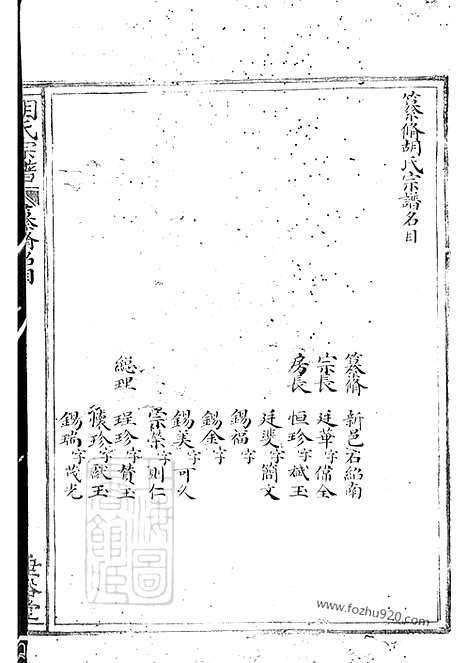 纂脩胡氏宗譜名目
纂脩 新邑石紹南
宗長 廷華字保全
房長 恒珍字斌玉
廷斐字簡文
錫福字
錫金字
錫美字可久
宗榮字則仁
総理 珵珍字賛玉
懷珍字献玉
錫瑞字茂光
胡氏宗譜
纂脩名目
www.fozhu920.com